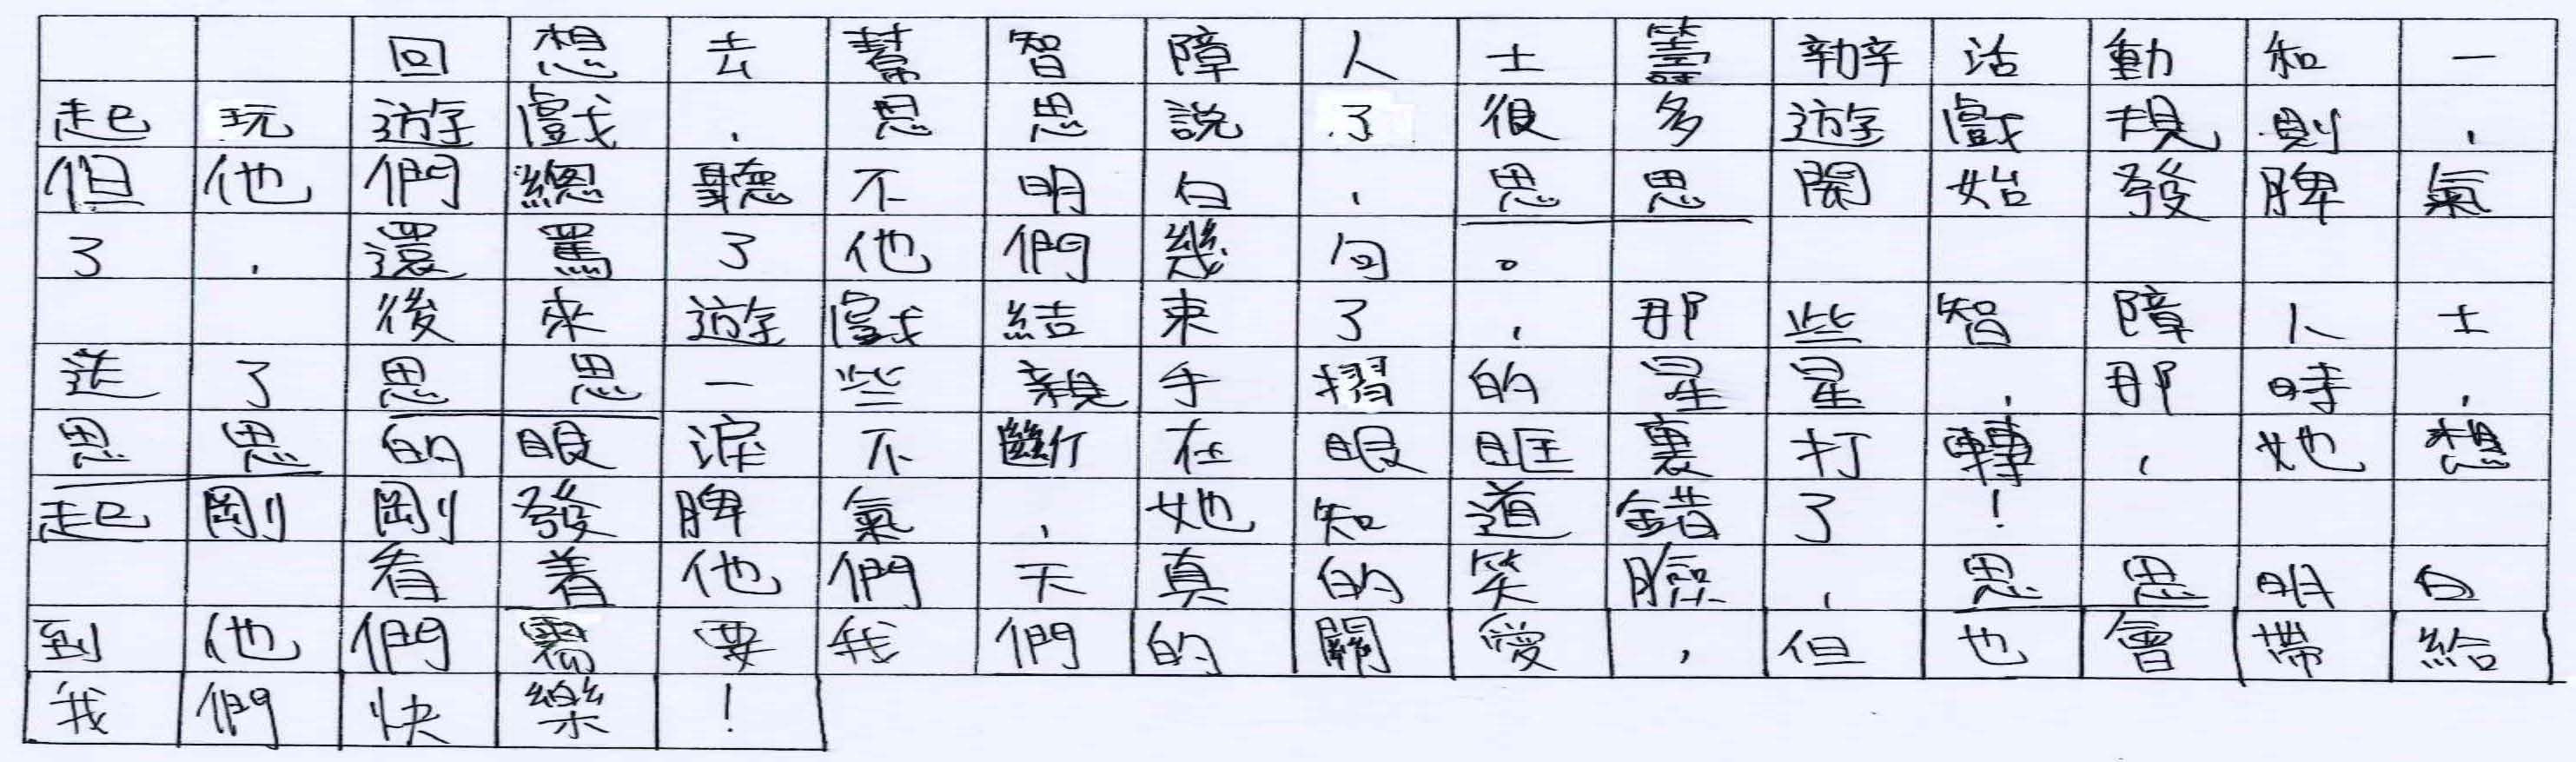 回想去幫智障人士籌辦活動和一
起玩遊戲，思思說了很多遊戲規則，
但他們總聽不明白，思思開始發脾氣
了，還罵了他們幾句。
後來遊戲結束了，那些智障人士
送了思思一些親手摺的星星，那時，
思思的眼淚不斷在眼眶裏打轉，她想
起剛剛發脾氣，她知道錯了！
看着他們天真的笑臉，思思明白
到他們需要我們的關愛，但也會帶給
我們快樂！